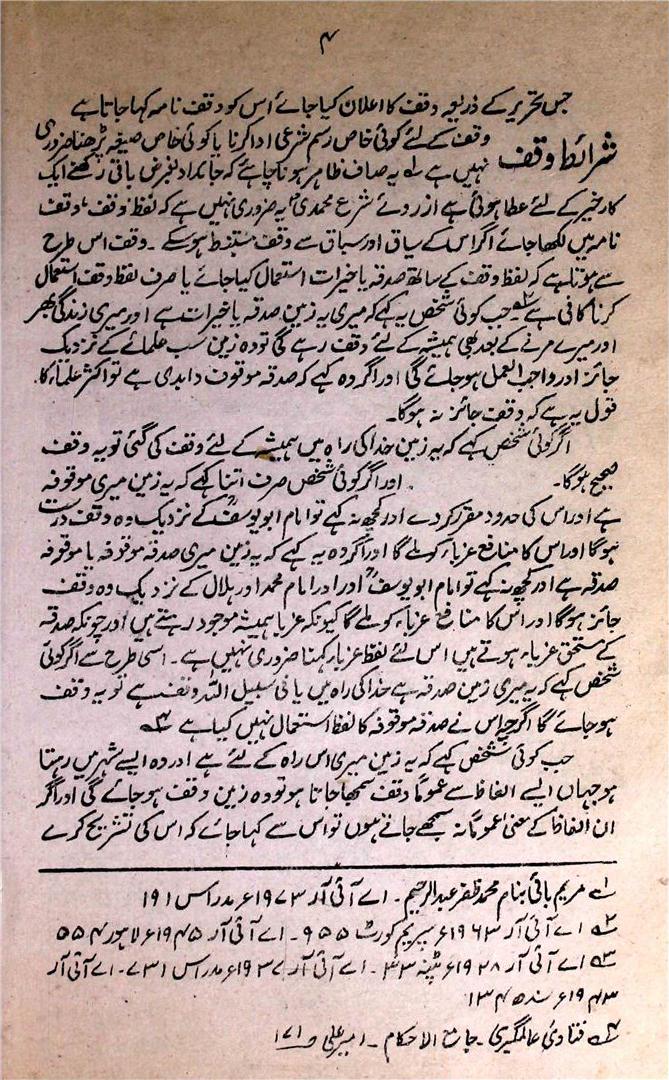 ۴
جس تحریر کے ذریعہ وقف کا اعلان کیا جائے اس کو وقف نامہ کہا جاتا ہے
شرائط وقف
وقف کے لئے کوئی خاص رسم شرعی ادا کرنا یا کوئی خاص صیغہ پڑھنا ضروری
نہیں ہے ۱؎ یہ صاف ظاہر ہونا چاہئے کہ جائداد بغرض باقی رکھنے ایک
کارخیر کے لئے عطا ہوئی ہے از روئے شرع محمدی یہ ضروری نہیں ہے کہ لفظ "وقف" وقف
نامہ میں لکھا جائے اگر اس کے سیاق اور سباق سے وقف مستنبط ہوسکے ۔ وقف اس طرح
سے ہوتا ہے کہ لفظ وقف کے ساتھ صدقہ یا خیرات استعمال کیا جائے یا صرف لفظ وقف استعمال
کرنا کافی ہے ۳؎ جب کوئی شخص یہ کہے کہ میری یہ زمین صدقہ یا خیرات ہے اور میری زندگی بھر
اور میرے مرنے کے بعد بھی ہمیشہ کے لئے وقف رہے گی تو وہ زمین سب علمائے کے نزدیک
جائز اور واجب العمل ہوجائے گی اور اگر وہ کہے کہ صدقہ موقوف دابدی ہے تو اکثر علماء کا
قول یہ ہے کہ وقف جائز نہ ہوگا۔
اگر کوئی شخص کہے کہ یہ زمین خدا کی راہ میں ہمیشہ کے لئے وقف کی گئی تو یہ وقف
صحیح ہوگا۔ اور اگر کوئی شخص صرف اتنا کہے کہ یہ زمین میری موقوفہ
ہے اور اس کی حدود مقرر کردے اور کچھ نہ کہے تو امام ابو یوسفؒ کے نزدیک وہ وقف درست
ہوگا اور اس کا منافع غرباء کو ملے گا اور اگر وہ یہ کہے کہ یہ زمین میری صدقہ موقوفہ یا موقوفہ
صدقہ ہے اور کچھ نہ کہے تو امام ابو یوسفؒ اور اور امام محمد اور ہلال کے نزدیک وہ وقف
جائز ہوگا اور اس کا منافع غرباء کو ملے گا کیونکہ غربا ہمیشہ موجود رہتے ہیں اور چونکہ صدقہ
کے مستحق غرباء ہوتے ہیں اس لئے لفظ غرباء کہنا ضروری نہیں ہے ۔ اسی طرح سے اگر کوئی
شخص کہے کہ یہ میری زمین صدقہ ہے خدا کی راہ میں یا فی سبیل اللہ وقف ہے تو یہ وقف
ہوجائے گا اگرچہ اس نے صدقہ موقوفہ کا لفظ استعمال نہیں کیا ہے ۴؎
جب کوئی شخص کہے کہ یہ زمین میری اس راہ کے لئے ہے اور وہ ایسے شہر میں رہتا
ہو جہاں ایسے الفاظ سے عموماً وقف سمجھا جاتا ہو تو وہ زمین وقف ہوجائے گی اور اگر
ان الفاظ کے معنی عموماً نہ سمجھے جاتے ہوں تو اس سے کہا جائے کہ اس کی تشریح کرے
۱؎ مریم بائی بنام محمد ظفر عبد الرحیم ۔ اے آئی آر ۱۹۷۳ء مدراس ۱۹۱
۲؎ اے آئی آر ۱۹۶۳ء سپریم کورٹ ۹۵۵ ۔ اے آئی آر ۱۹۴۵ء لاہور ۵۵
۳؎ اے آئی آر ۱۹۲۸ء پٹنہ ۔ اے آئی آر ۱۹۳۷ء مدراس ۷۳۱ ۔ اے آئی آر
۱۹۴۳ء سندھ ۱۳۴
۴؎ فتاویٰ عالمگیری ۔ جامع الاحکام ۔ امیر علی و ۱۷۱